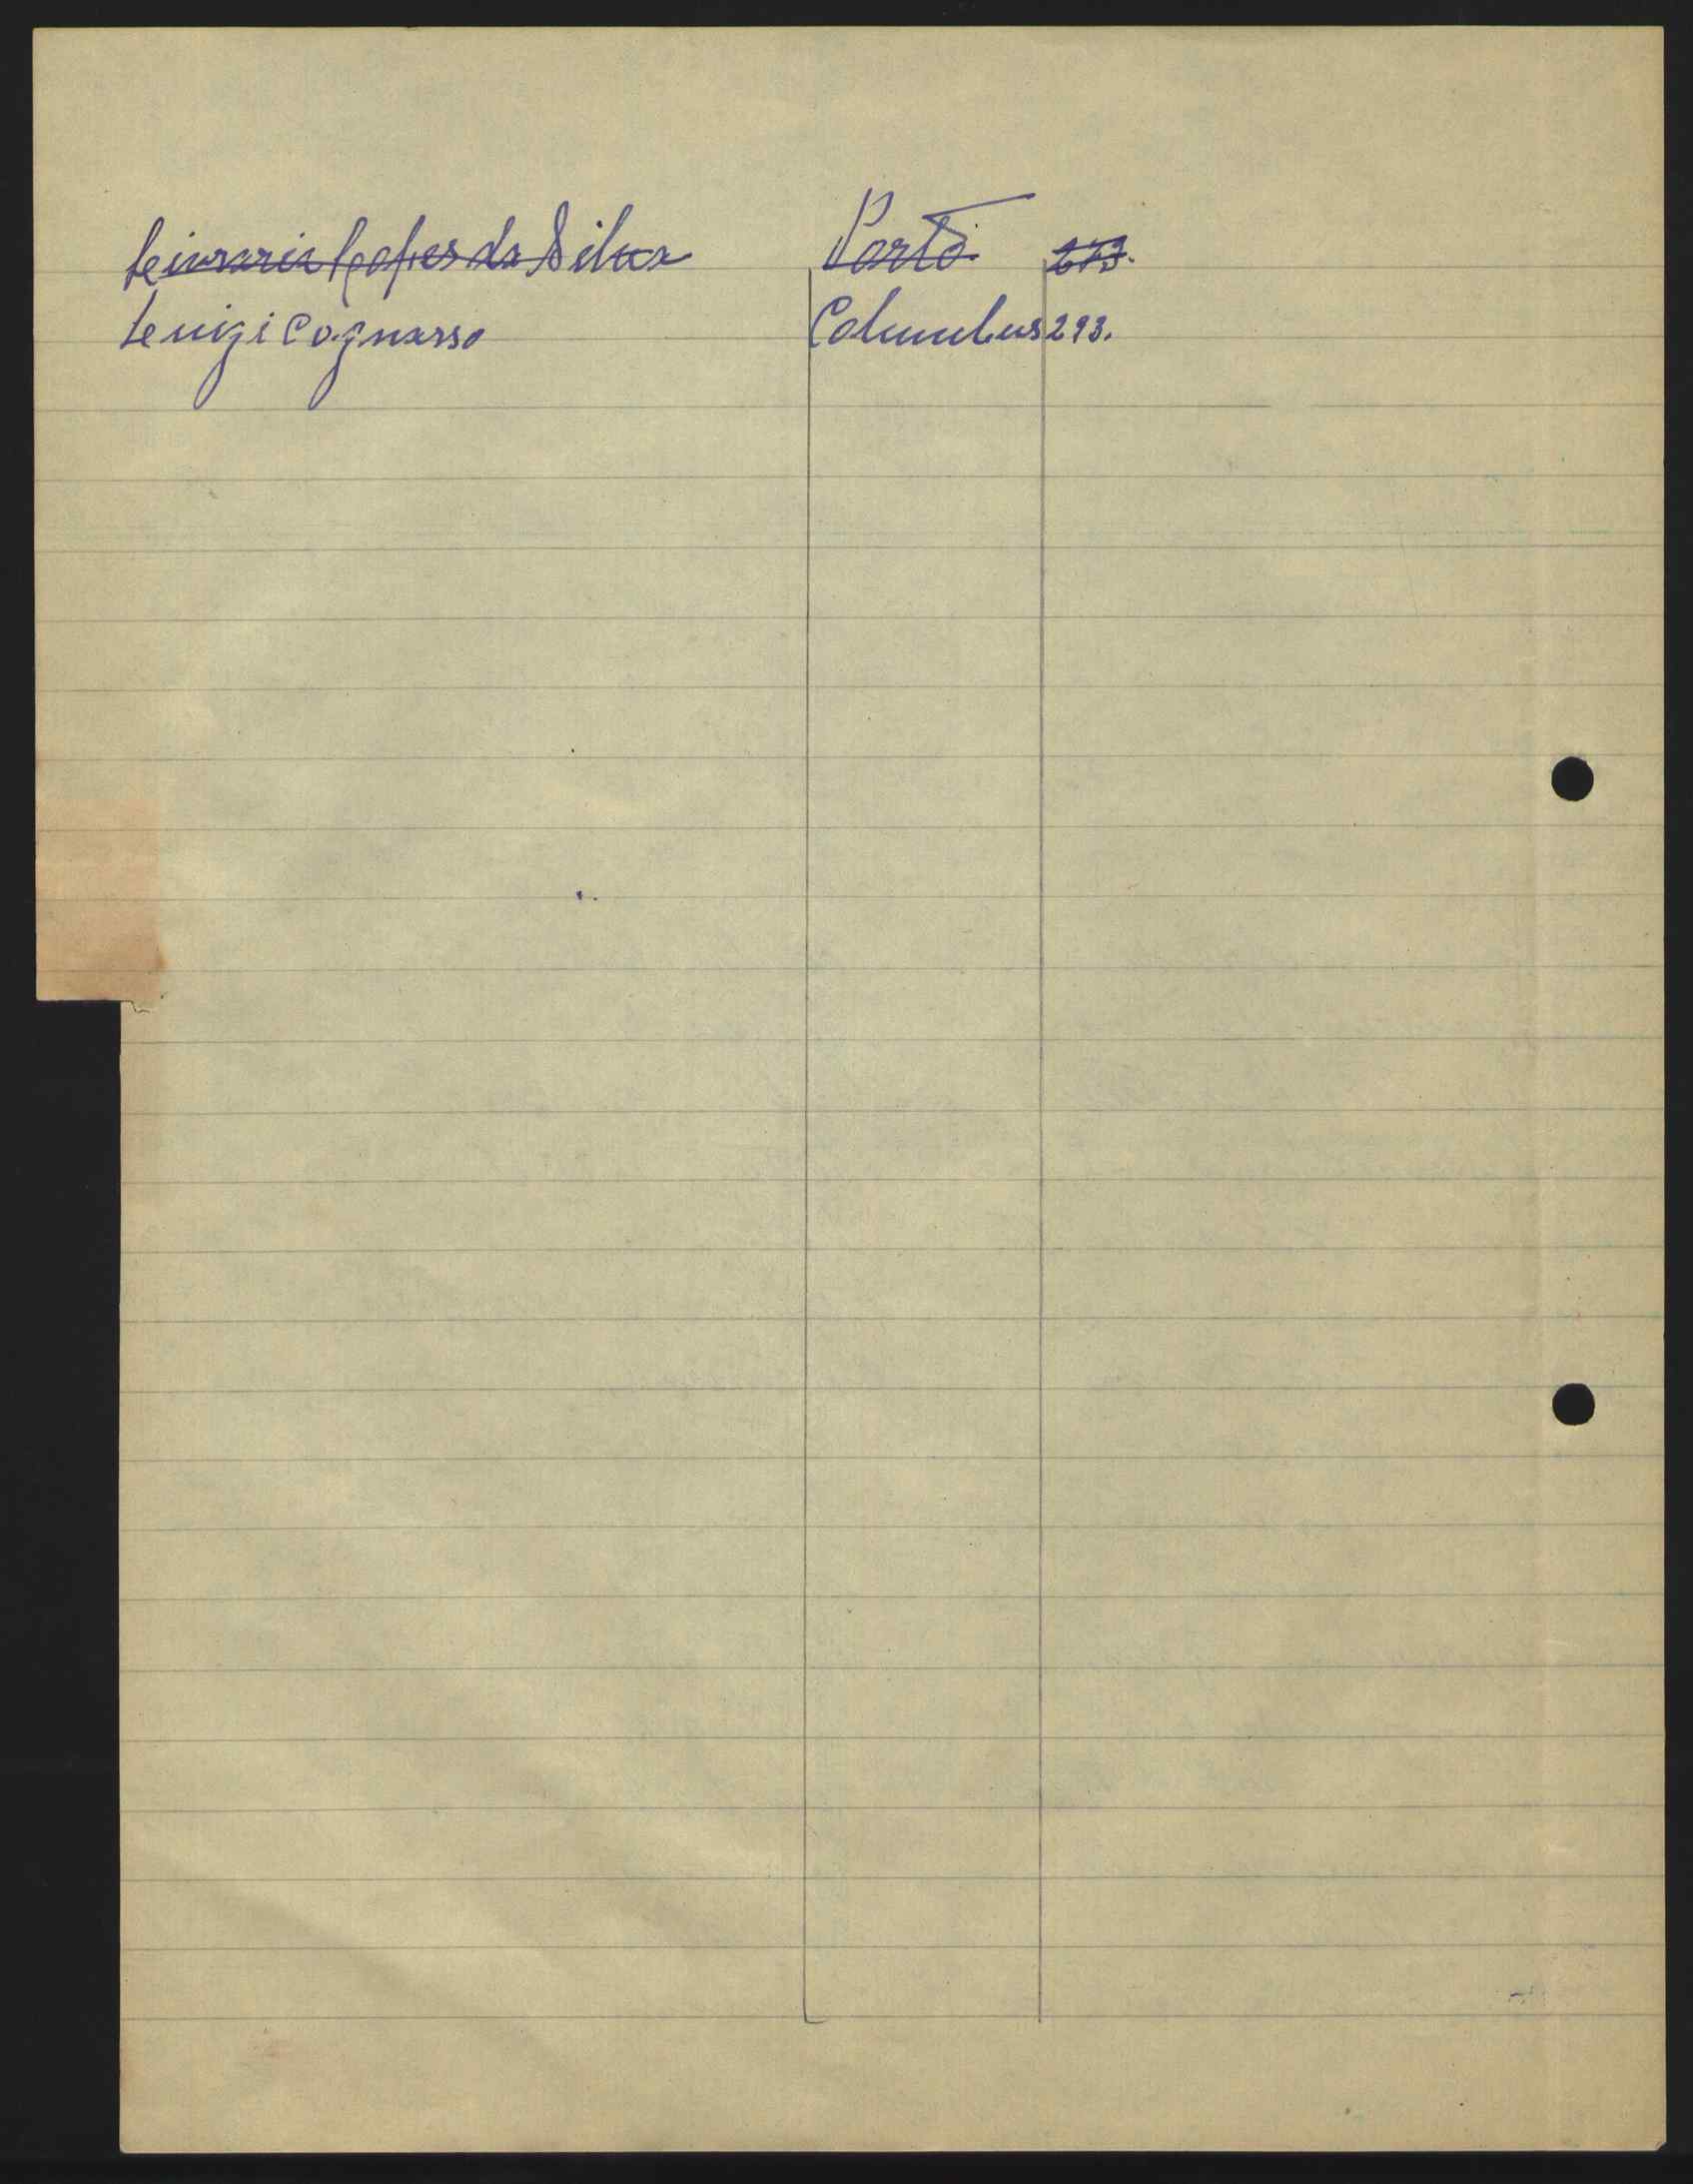 Livraria Lopes da Silva Porto
Luigi Cognasso Columbus 293.